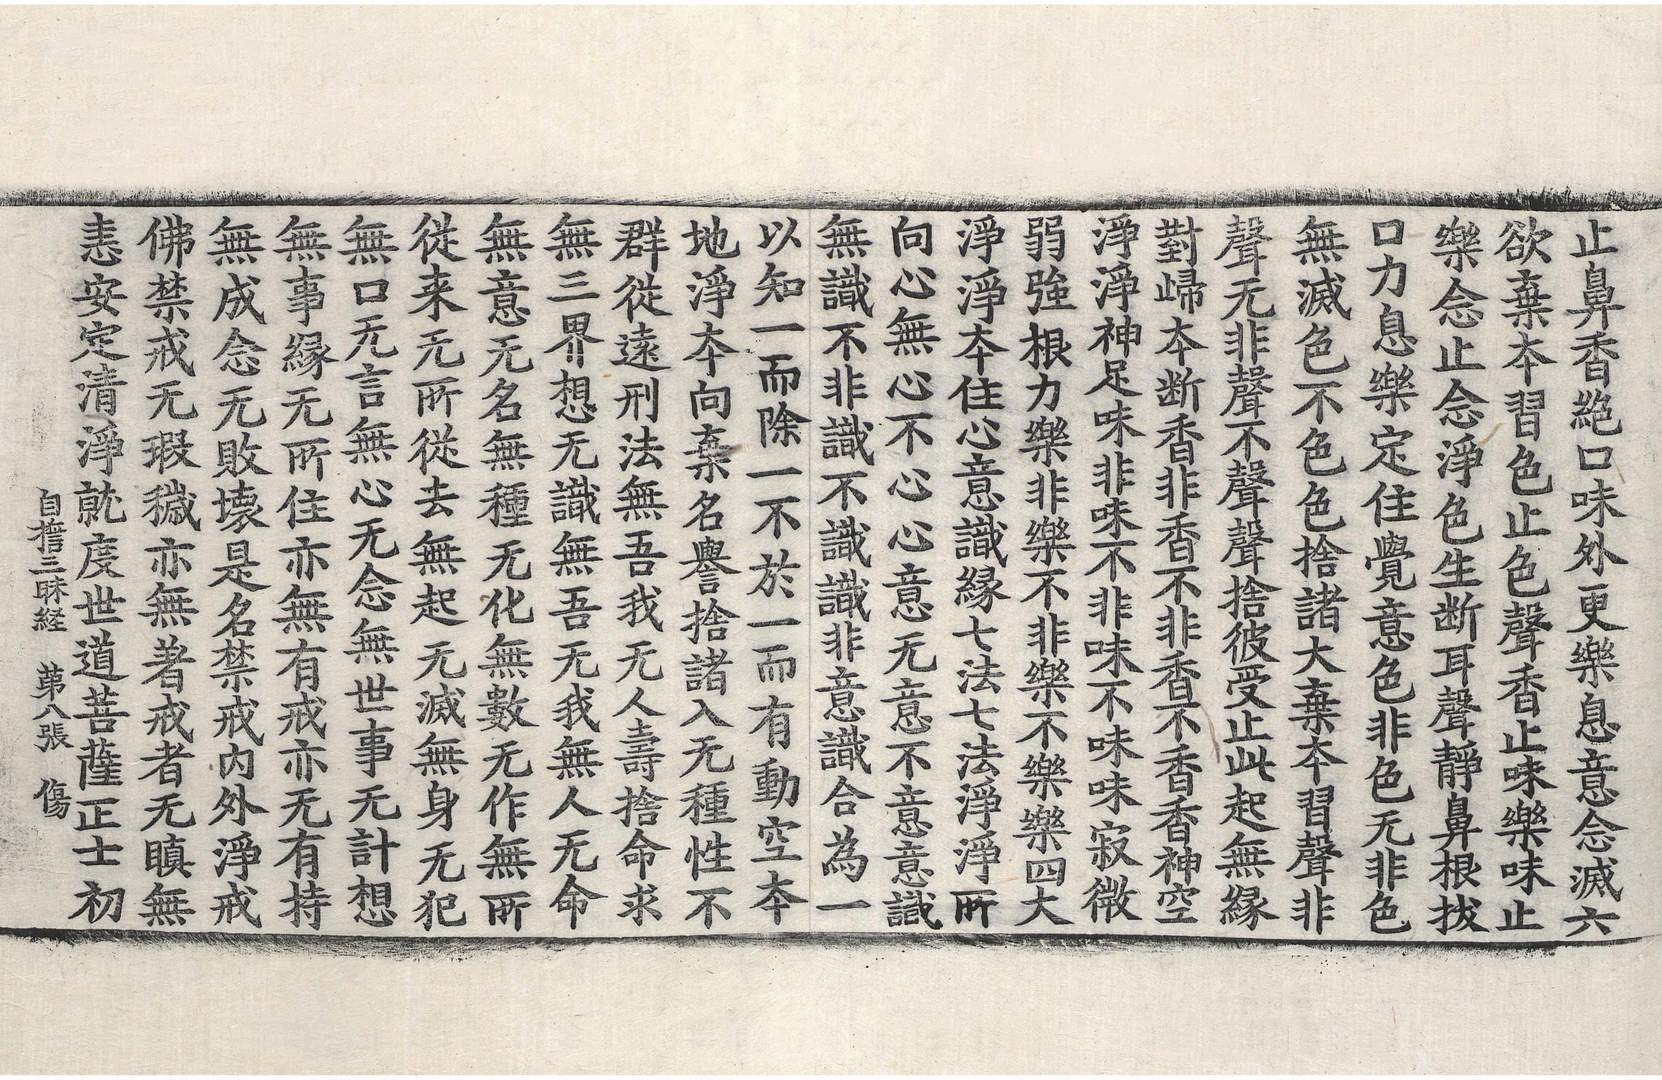 止鼻香絶口味外更樂息意念滅六
欲棄本習色止色聲香止味樂味止
樂念止念淨色生断耳聲靜鼻根拔
口力息樂定住覺意色非色无非色
無滅色不色色捨諸大棄本習聲非
聲无非聲不聲聲捨彼受止此起無縁
對歸本断香非香不非香不香香神空
淨淨神足味非味不非味不味味寂微
弱強根力樂非樂不非樂不樂樂四大
淨淨本住心意識縁七法七法淨淨所
向心無心不心心意无意不意意識
無識不非識不識識非意識合為一
以知一而除一不於一而有動空本
地淨本向棄名譽捨諸入无種性不
群從遠刑法無吾我无人壽捨命求
無三界想无識無吾无我無人无命
無意无名無種无化無數无作無所
從来无所從去無起无滅無身无犯
無口无言無心无念無世事无計想
無事縁无所住亦無有戒亦无有持
無成念无敗壊是名禁戒内外淨戒
佛禁戒无瑕穢亦無著戒者无瞋無
恚安定清淨就度世道菩薩正士初
自擔三昧経　第八張　傷